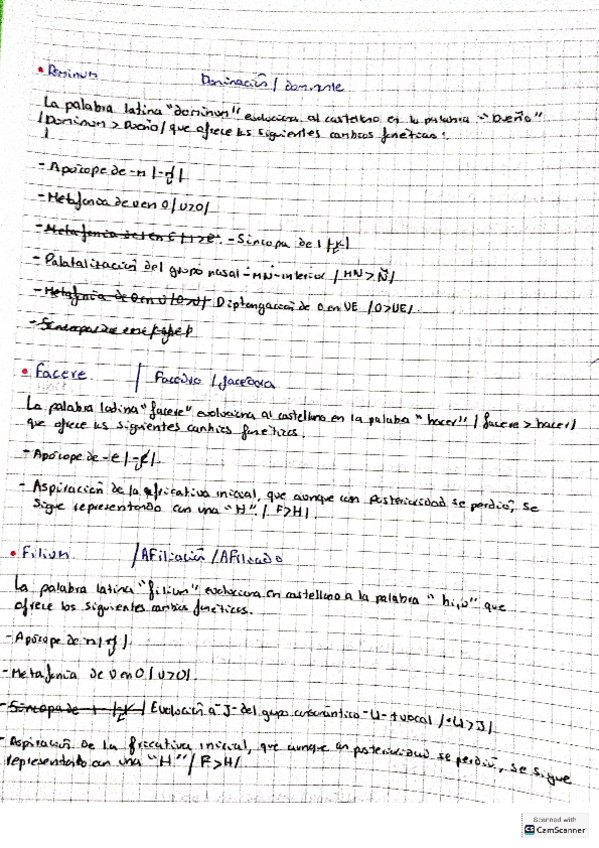 • Dominum Dominación / dominante
La palabra latina "dominum" evoluciona al castellano en la palabra "Dueño"
/Dominum > Dueño/ que ofrece los siguientes cambios fonéticos:
- Apócope de -m /-m/
- Metafonía de u en o /u>o/
- Metafonía de i en e /i>e/. - Síncopa de i /i/
- Palatalización del grupo nasal -MN- interior /MN>Ñ/
- Metafonía de o en u /o>u/ Diptongación de o en UE /O>UE/
• Facere / /facedora
La palabra latina "facere" evoluciona al castellano en la palabra "hacer" /facere > hacer/
que ofrece los siguientes cambios fonéticos.
- Apócope de -e /-e/.
- Aspiración de la fricativa inicial, que aunque con posterioridad se perdió, se
sigue representando con una "H" / F>H/.
• Filium /AFiliación /AFiliado
La palabra latina "filium" evoluciona en castellano a la palabra "hijo" que
ofrece los siguientes cambios fonéticos.
- Apócope de m /m/.
- Metafonía de U en O / U>O/.
- Síncopa de Evolución a -J- del grupo consonántico -LI- + vocal /-LI>J/.
- Aspiración de la fricativa inicial, que aunque con posterioridad se perdió, se sigue
representando con una "H" / F>H/
Scanned with
CS CamScanner